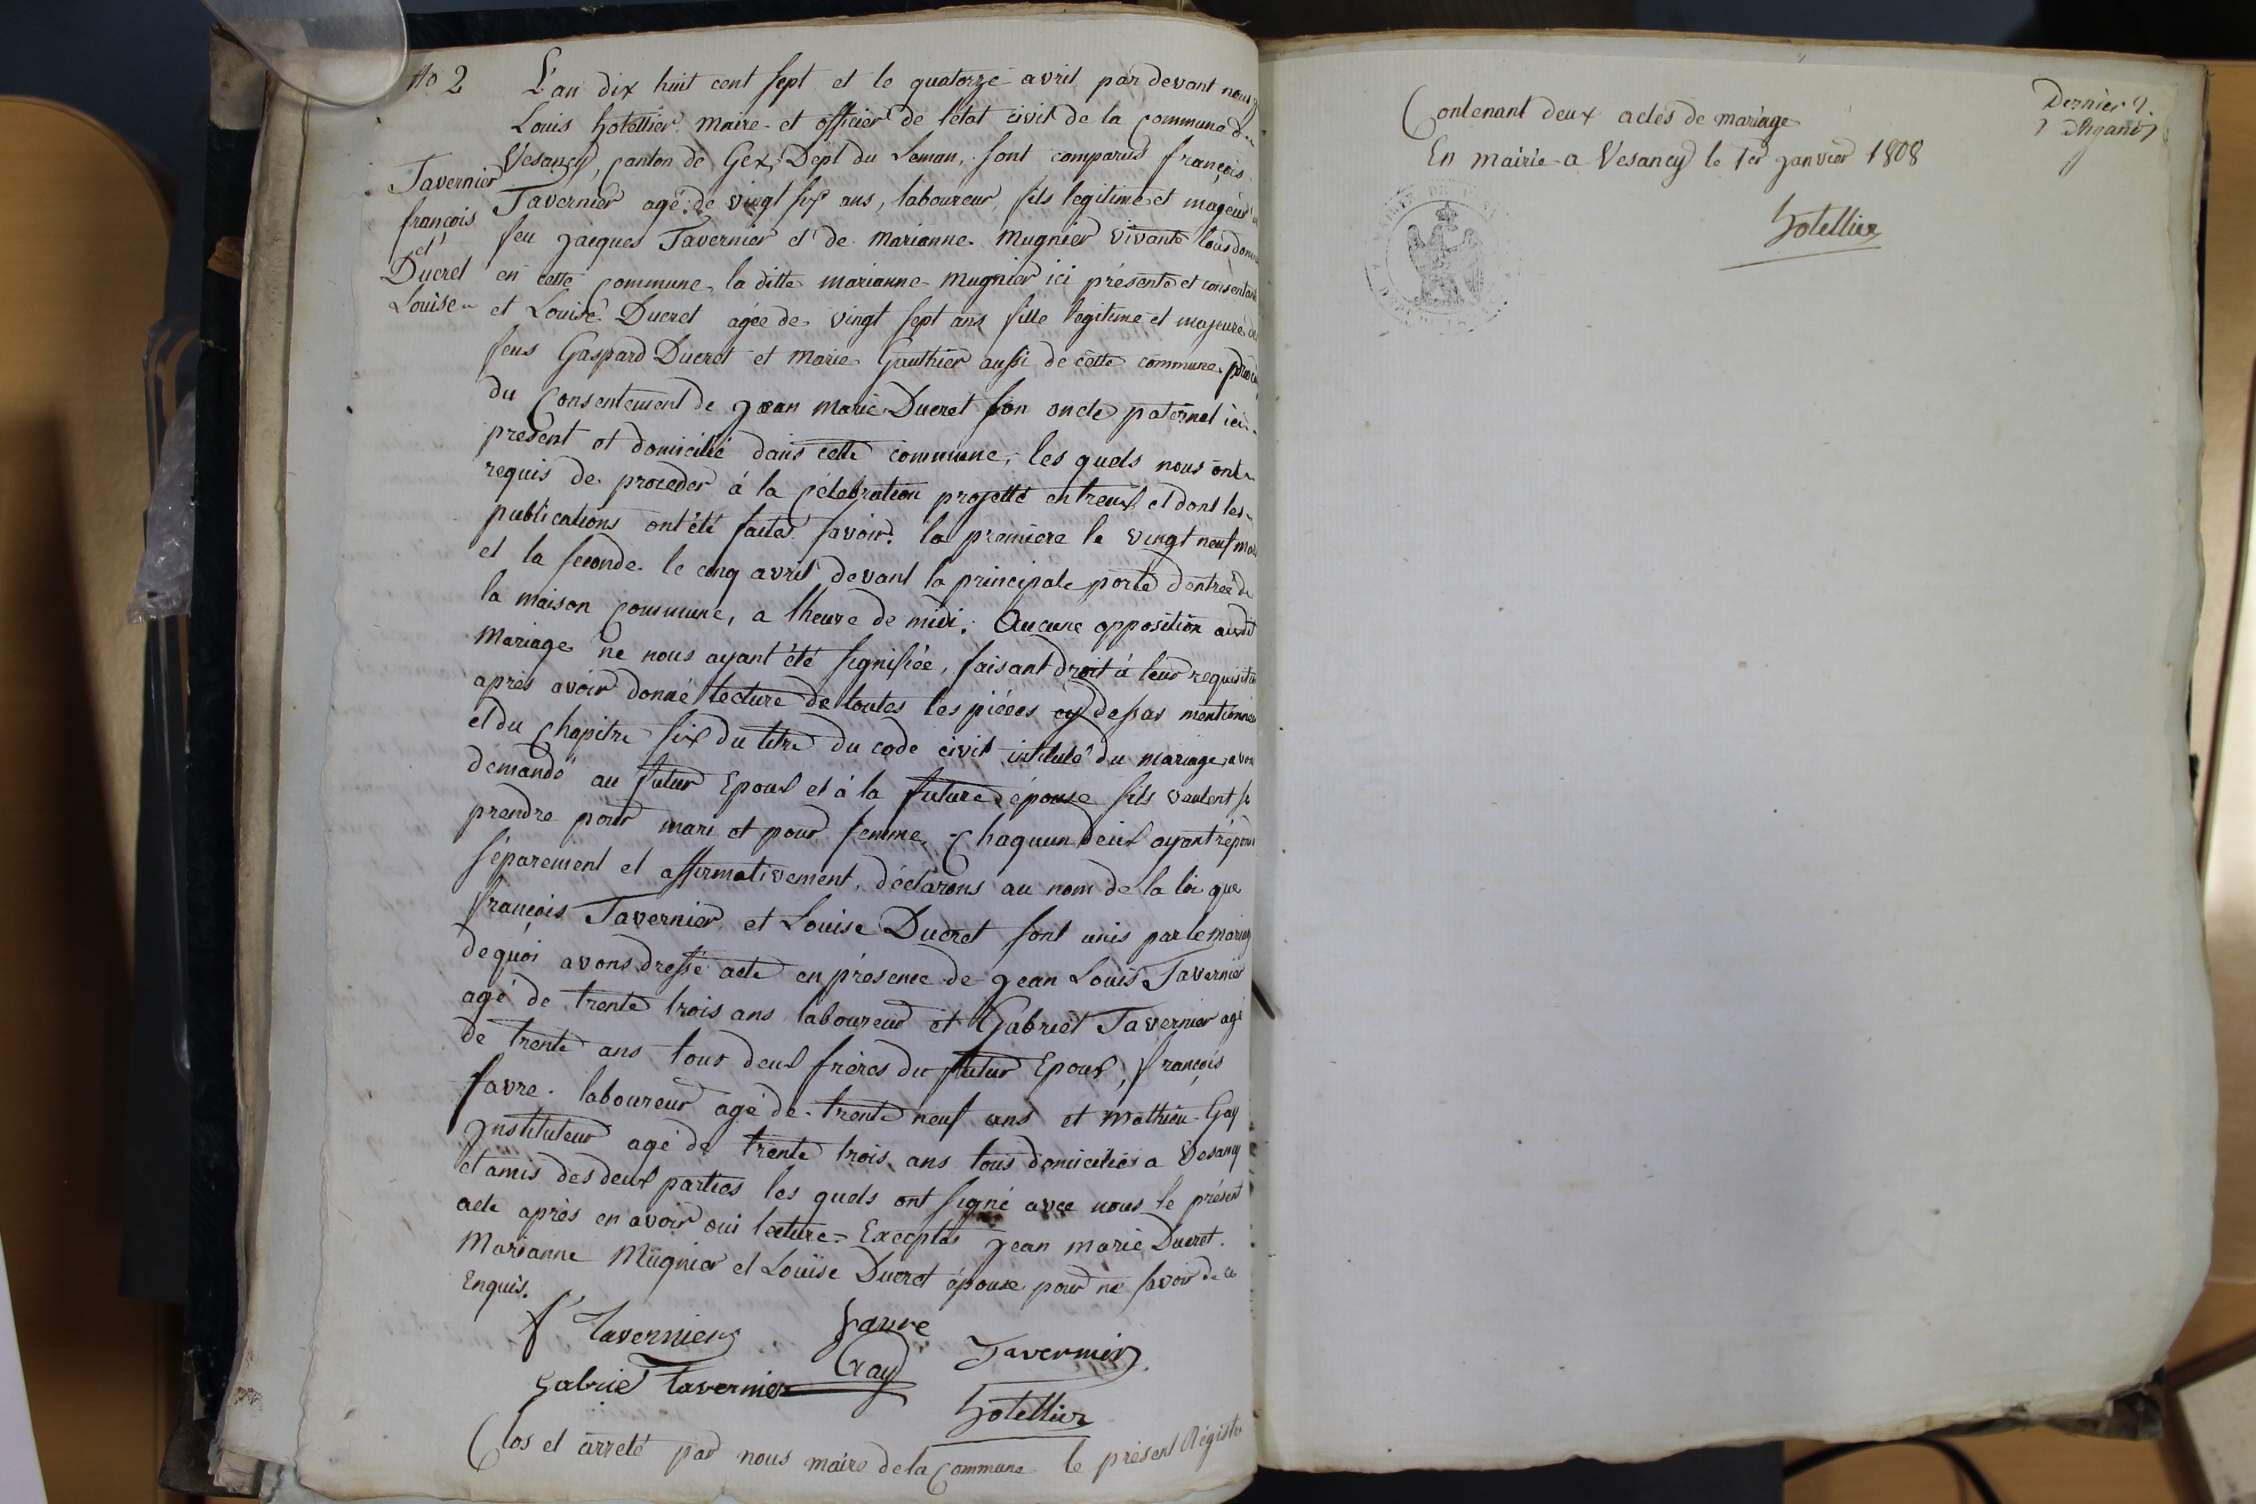 No 2
L'an dix huit cent sept et le quatorze avril par devant nous
Louis hotellier maire et officier de l'état civil de la commune de
Vesancy, canton de Gex, Dépt du Leman, sont comparus françois
Tavernier
françois
et
Ducret
Louise
Tavernier agé de vingt six ans, laboureur, fils legitime et majeur
feu jacques Tavernier et de Marianne Mugnier vivante tous
en cette commune, la ditte marianne Mugnier ici présente et consentante
et Louise Ducret agée de vingt sept ans fille legitime et majeure de
feus Gaspard Ducret et Marie Gauthier aussi de cette commune
du consentement de jean marie Ducret son oncle paternel ici
présent et domicilié dans cette commune, les quels nous ont
requis de proceder à la célebration projetté entreux et dont les
publications ont été faites savoir. la premiere le vingt neuf mars
et la seconde le cinq avril devant la principale porte d'entrée de
la maison commune, a lheure de midi. Aucune opposition audit
mariage ne nous ayant été signifiée, faisant droit à leur requisition
après avoir donné lecture de toutes les piéces cy dessus mentionnées
et du chapitre six du titre du code civil intitulé du mariage avons
demandé au futur Epoux et à la future épouse sils veulent se
prendre pour mari et pour femme, Chaquun deux ayant répondu
séparement et affirmativement, déclarons au nom de la loi que
françois Tavernier et Louise Ducret sont unis par le mariage
de quoi avons dressé acte en présence de jean Louis Tavernier
agé de trente trois ans laboureur et Gabriel Tavernier agé
de trente ans tous deux frères du futur Epoux, françois
favre laboureur agé de trente neuf ans et Mathieu Gay
Instituteur agé de trente trois ans tous domiciliés a Vesancy
et amis des deux parties les quels ont signé avec nous le présent
acte après en avoir oui lecture = Exceptés jean marie Ducret.
Marianne Mugnier et Louise Ducret épouse pour ne savoir de ce
Enquis.
f Tavernier favre
Gay Tavernier
Gabriel Tavernier
hotellier
Clos et arreté par nous maire de la commune le présent Régistre
Contenant deux actes de mariage
En mairie a Vesancy le 1er janvier 1808
hotellier
Dernier